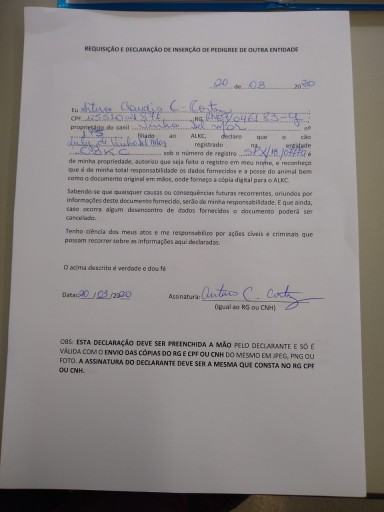 REQUISIÇÃO E DECLARAÇÃO DE INSERÇÃO DE PEDIGREE DE OUTRA ENTIDADE
20 de 03 2020
Eu Arturo Claudio C. Costa
CPF RG
proprietário do canil nº
175 filiado ao ALKC, declaro que o cão
registrado na entidade
sob o número de registro é
de minha propriedade, autorizo que seja feito o registro em meu nome, e reconheço
que é de minha total responsabilidade os dados fornecidos e a posse do animal bem
como o documento original em mãos, onde forneço a cópia digital para o ALKC.
Sabendo-se que quaisquer causas ou consequências futuras recorrentes, oriundos por
informações deste documento fornecido, serão de minha responsabilidade. E que ainda,
caso ocorra algum desencontro de dados fornecidos o documento poderá ser
cancelado.
Tenho ciência dos meus atos e me responsabilizo por ações cíveis e criminais que
possam recorrer sobre as informações aqui declaradas.
O acima descrito é verdade o dou fé
Data: 20 / 03 /2020 Assinatura: Arturo C. Costa
(igual ao RG ou CNH)
OBS: ESTA DECLARAÇÃO DEVE SER PREENCHIDA A MÃO PELO DECLARANTE E SÓ É
VÁLIDA COM O ENVIO DAS CÓPIAS DO RG E CPF OU CNH DO MESMO EM JPEG, PNG OU
FOTO. A ASSINATURA DO DECLARANTE DEVE SER A MESMA QUE CONSTA NO RG CPF
OU CNH.